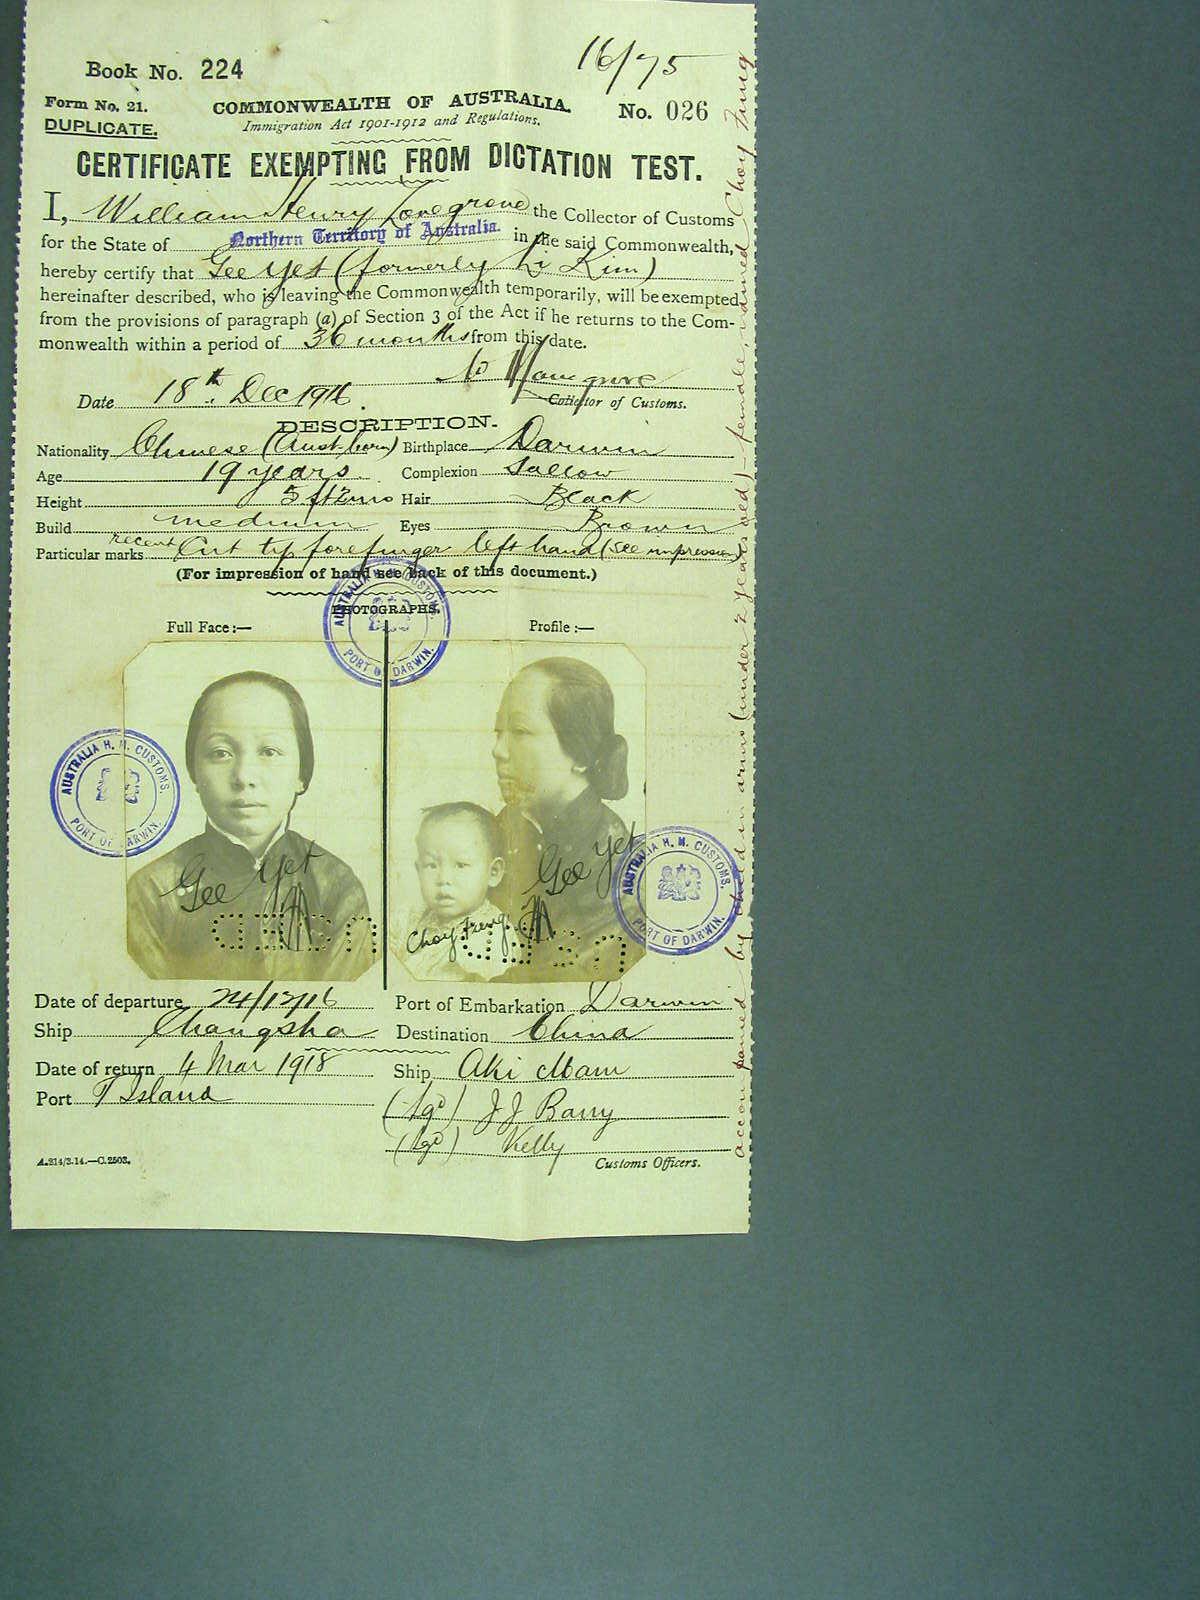 16/75
Book No. 224
Form No. 21.
COMMONWEALTH OF AUSTRALIA.
No. 026
DUPLICATE.
Immigration Act 1901-1912 and Regulations.
CERTIFICATE EXEMPTING FROM DICTATION TEST.
I, William Henry Lovegrove the Collector of Customs
for the State of Northern Territory of Australia. in the said Commonwealth,
hereby certify that Gee Yet (formerly Li Kim)
hereinafter described, who is leaving the Commonwealth temporarily, will be exempted
from the provisions of paragraph (a) of Section 3 of the Act if he returns to the Com-
monwealth within a period of 36 months from this date.
W H Lovegrove
Date 18th Dec 1916.
Collector of Customs.
DESCRIPTION.
Nationality Chinese (Aust. born) Birthplace Darwin
Age 19 years. Complexion Sallow
Height 5 ft 2 ins Hair Black
Build medium Eyes Brown
Particular marks recent Cut tip forefinger left hand (see impression)
(For impression of hand see back of this document.)
PHOTOGRAPHS.
Full Face:— Profile:—
AUSTRALIA H. M. CUSTOMS. PORT OF DARWIN.
AUSTRALIA H. M. CUSTOMS. PORT OF DARWIN.
AUSTRALIA H. M. CUSTOMS. PORT OF DARWIN.
Gee Yet
Gee Yet
Choy Fung
Date of departure 24/12/16 Port of Embarkation Darwin
Ship Changsha Destination China
Date of return 4 Mar 1918 Ship Aki Maru
Port T Island
(sgd) J J Barry
(sgd) Kelly
A.214/3.14.—C.2503. Customs Officers.
accompanied by child in arms (under 2 years old) - female, named Choy Fung